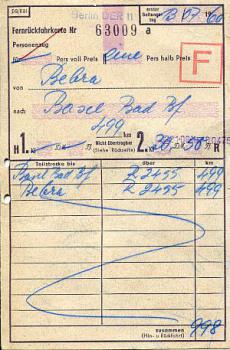 Berlin DER 11
Fernrückfahrkarte Nr 63009 a
Personenzug
für Pers voll Preis Eine Pers halb Preis
F
von Bebra
nach Basel Bad Bf.
499 km
H 1. Kl DM Nicht übertragbar 2. Kl DM R
(Siehe Rückseite)
Teilstrecke bis über km
Basel Bad Bf R 2455 499
Bebra R 2455 499
zusammen
(Hin- u Rückfahrt) 998